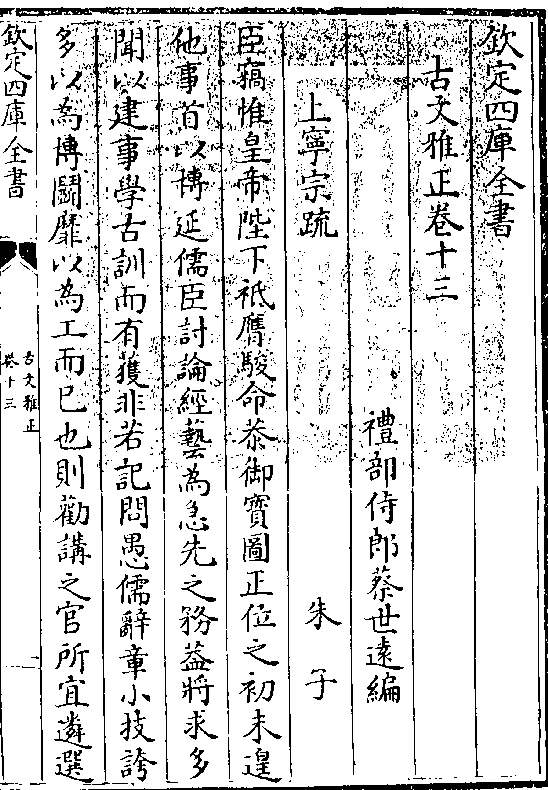 欽定四庫全書
古文雅正卷十三
禮部侍郎蔡世遠編
上寧宗疏 朱子
臣竊惟皇帝陛下祗膺駿命恭御寶圖正位之初未遑
他事首以博延儒臣討論經藝為急先之務葢將求多
聞以建事學古訓而有獲非若記問愚儒辭章小技誇
多以為博鬭靡以為工而已也則勸講之官所宜遴選
欽定四庫全書
古文雅正
卷十三
一